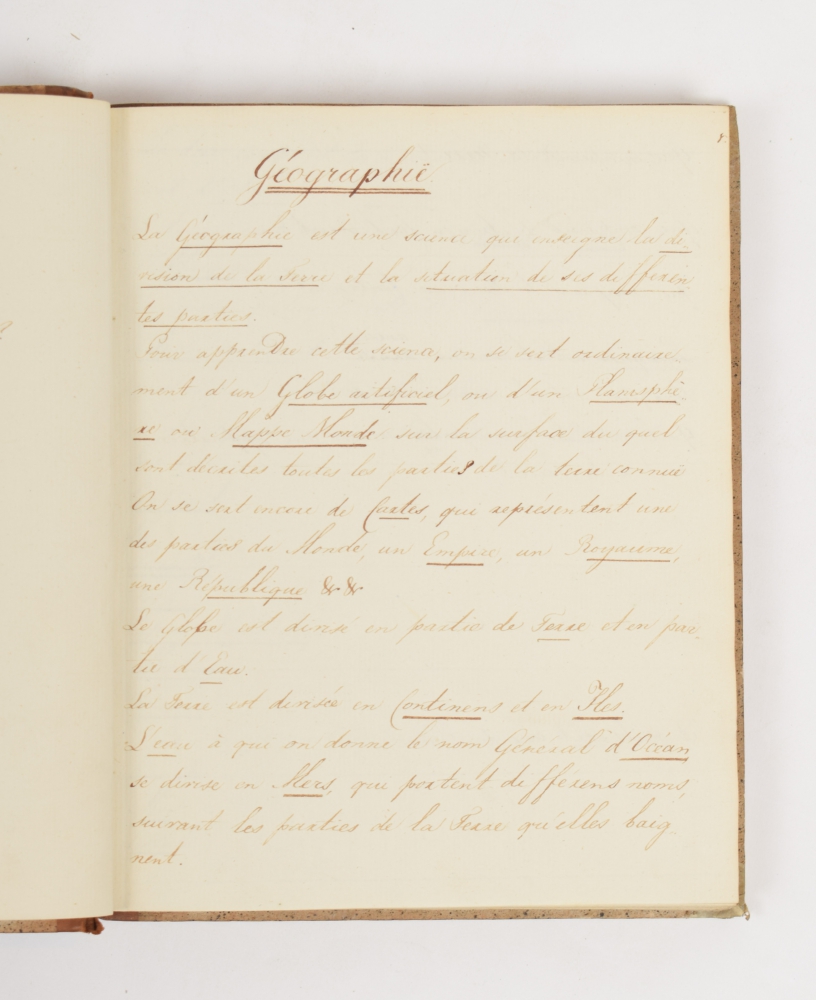 Géographië
La Géographie est une science qui enseigne la di-
vision de la Terre et la situation de ses différen
tes parties.
Pour apprendre cette science, on se sert ordinaire-
ment d'un Globe artificiel, ou d'un Planisphè-
re ou Mappe Monde sur la surface du quel
sont décrites toutes les parties de la terre connuë
On se sert encore de Cartes, qui représentent une
des parties du Monde, un Empire, un Royaume,
une République & &
Le Globe est divisé en partie de Terre et en par-
tie d'Eau.
La Terre est divisée en Continens et en Iles.
L'eau à qui on donne le nom Général d'Océan
se divise en Mers, qui portent différens noms,
suivant les parties de la Terre qu'elles baig-
nent.